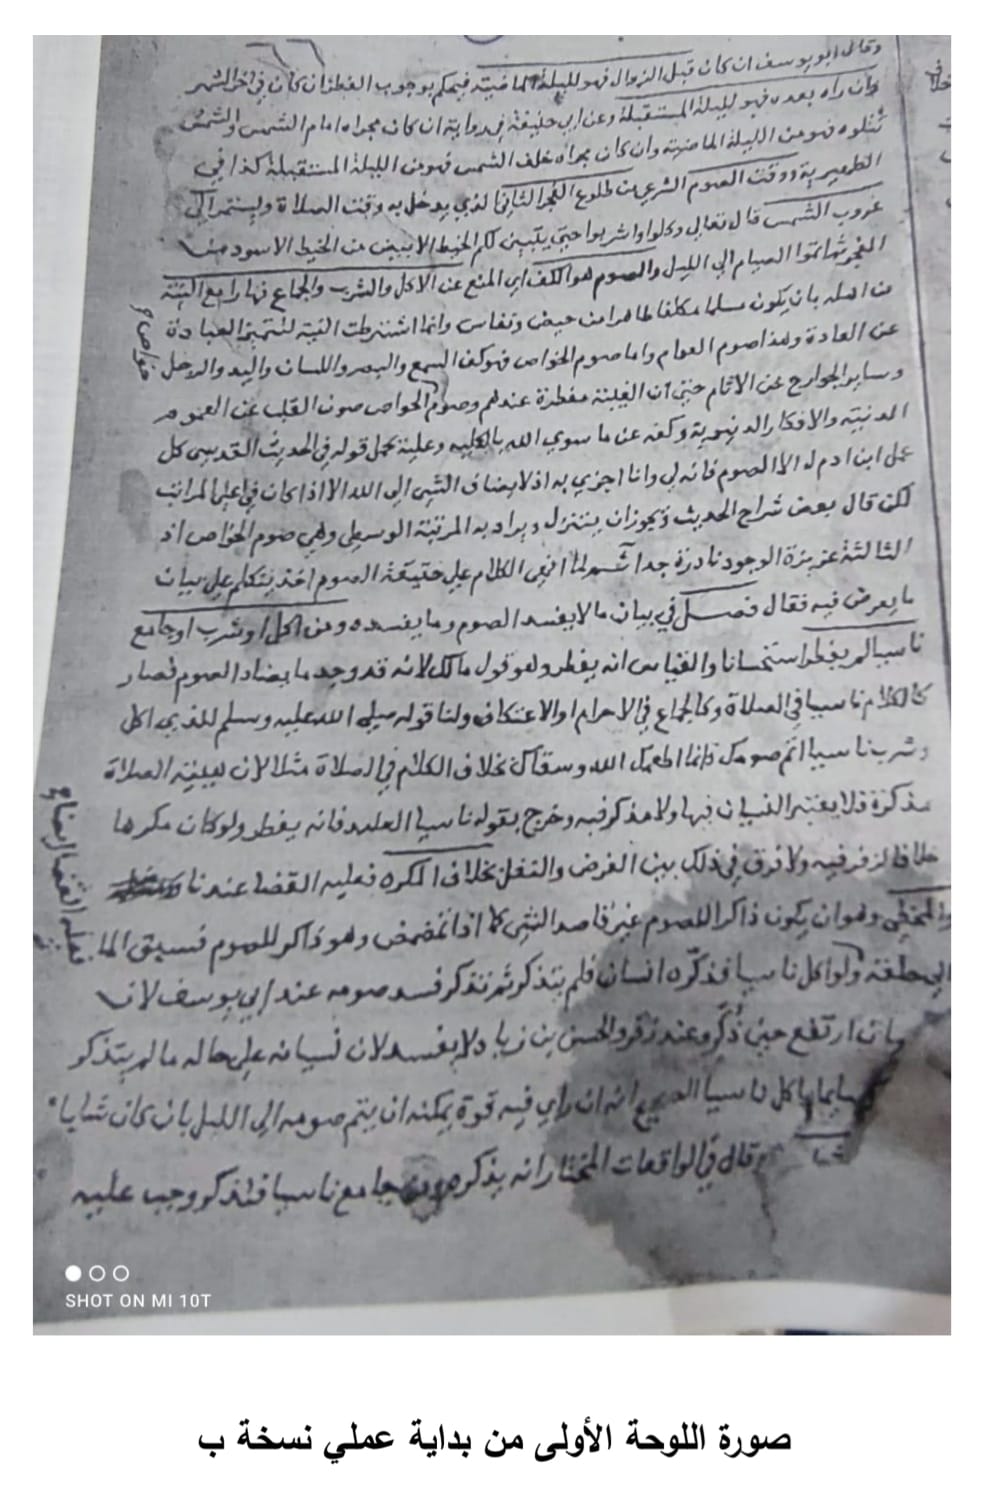 وقال ابو يوسف ان كان قبل الزوال فهو لليلة الماضية فيحكم بوجوب الفطر ان كان في اخر الشهر
وان راه بعده فهو لليلة المستقبلة وعن ابي حنيفة في رواية ان كان مجراه امام الشمس والشمس
تتلوه فهو من الليلة الماضية وان كان مجراه خلف الشمس فهو من الليلة المستقبلة كذا في
الظهيرية ووقت الصوم الشرعي من طلوع الفجر الثاني الذي يدخل به وقت الصلاة ويستمر الى
غروب الشمس قال تعالى وكلوا واشربوا حتى يتبين لكم الخيط الابيض من الخيط الاسود من
الفجر ثم اتموا الصيام الى الليل والصوم هو الكف اي المنع عن الاكل والشرب والجماع نهارا مع النية
من اهله بان يكون مسلما مكلفا طاهرا من حيض ونفاس وانما اشترطت النية لتتميز العبادة
عن العادة وهذا صوم العوام واما صوم الخواص فهو كف السمع والبصر واللسان واليد والرجل
وساير الجوارح عن الاثام حتى ان الغيبة مفطرة عندهم وصوم الخواص صون القلب عن الهموم
الدنية والافكار الدنيوية وكفه عن ما سوى الله بالكلية وعليه يحمل قوله في الحديث القدسي كل
عمل ابن ادم له الا الصوم فانه لي وانا اجزي به اذ لا يضاف الشي الى الله الا اذا كان في اعلى المراتب
لكن قال بعض شراح الحديث ويجوز ان يتنزل ويراد به المرتبة الوسطى وهي صوم الخواص اذ
الثالثة عزيزة الوجود نادرة جدا ثم لما انهى الكلام على حقيقة الصوم اخذ يتكلم على بيان
ما يعرض فيه فقال فصل في بيان ما لا يفسد الصوم وما يفسده ومن اكل او شرب او جامع
ناسيا لم يفطر استحسانا والقياس انه يفطر وهو قول مالك لانه قد وجد ما يضاد الصوم فصار
كالكلام ناسيا في الصلاة وكالجماع في الاحرام والاعتكاف ولنا قوله صلى الله عليه وسلم للذي اكل
وشرب ناسيا اتم صومك فانما اطعمك الله وسقاك بخلاف الكلام في الصلاة مثلا لان هيئة الصلاة
مذكرة فلا يعتبر النسيان فيها ولا مذكر فيه وخرج بقوله ناسيا العامد فانه يفطر ولو كان مكرها
خلافا لزفر فيه ولا فرق في ذلك بين الفرض والنفل بخلاف المكره فعليه القضا عندنا
والمخطي وهو ان يكون ذاكرا للصوم غير قاصد الشي كما اذا تمضمض وهو ذاكر للصوم فسبق الما
الى حلقه ولو اكل ناسيا فذكره انسان فلم يتذكر ثم تذكر فسد صومه عند ابي يوسف لان
ارتفع حين ذكر وعند زفر والحسن بن زياد لا يفسد لان نسيانه على حاله ما لم يتذكر
ياكل ناسيا الصحيح انه ان راى فيه قوة يمكنه ان يتم صومه الى الليل بان كان شابا
وقال في الواقعات المختار انه يذكره جامع ناسيا فتذكر وجب عليه
فعليه القضا ايضا
SHOT ON MI 10T
صورة اللوحة الأولى من بداية عملي نسخة ب